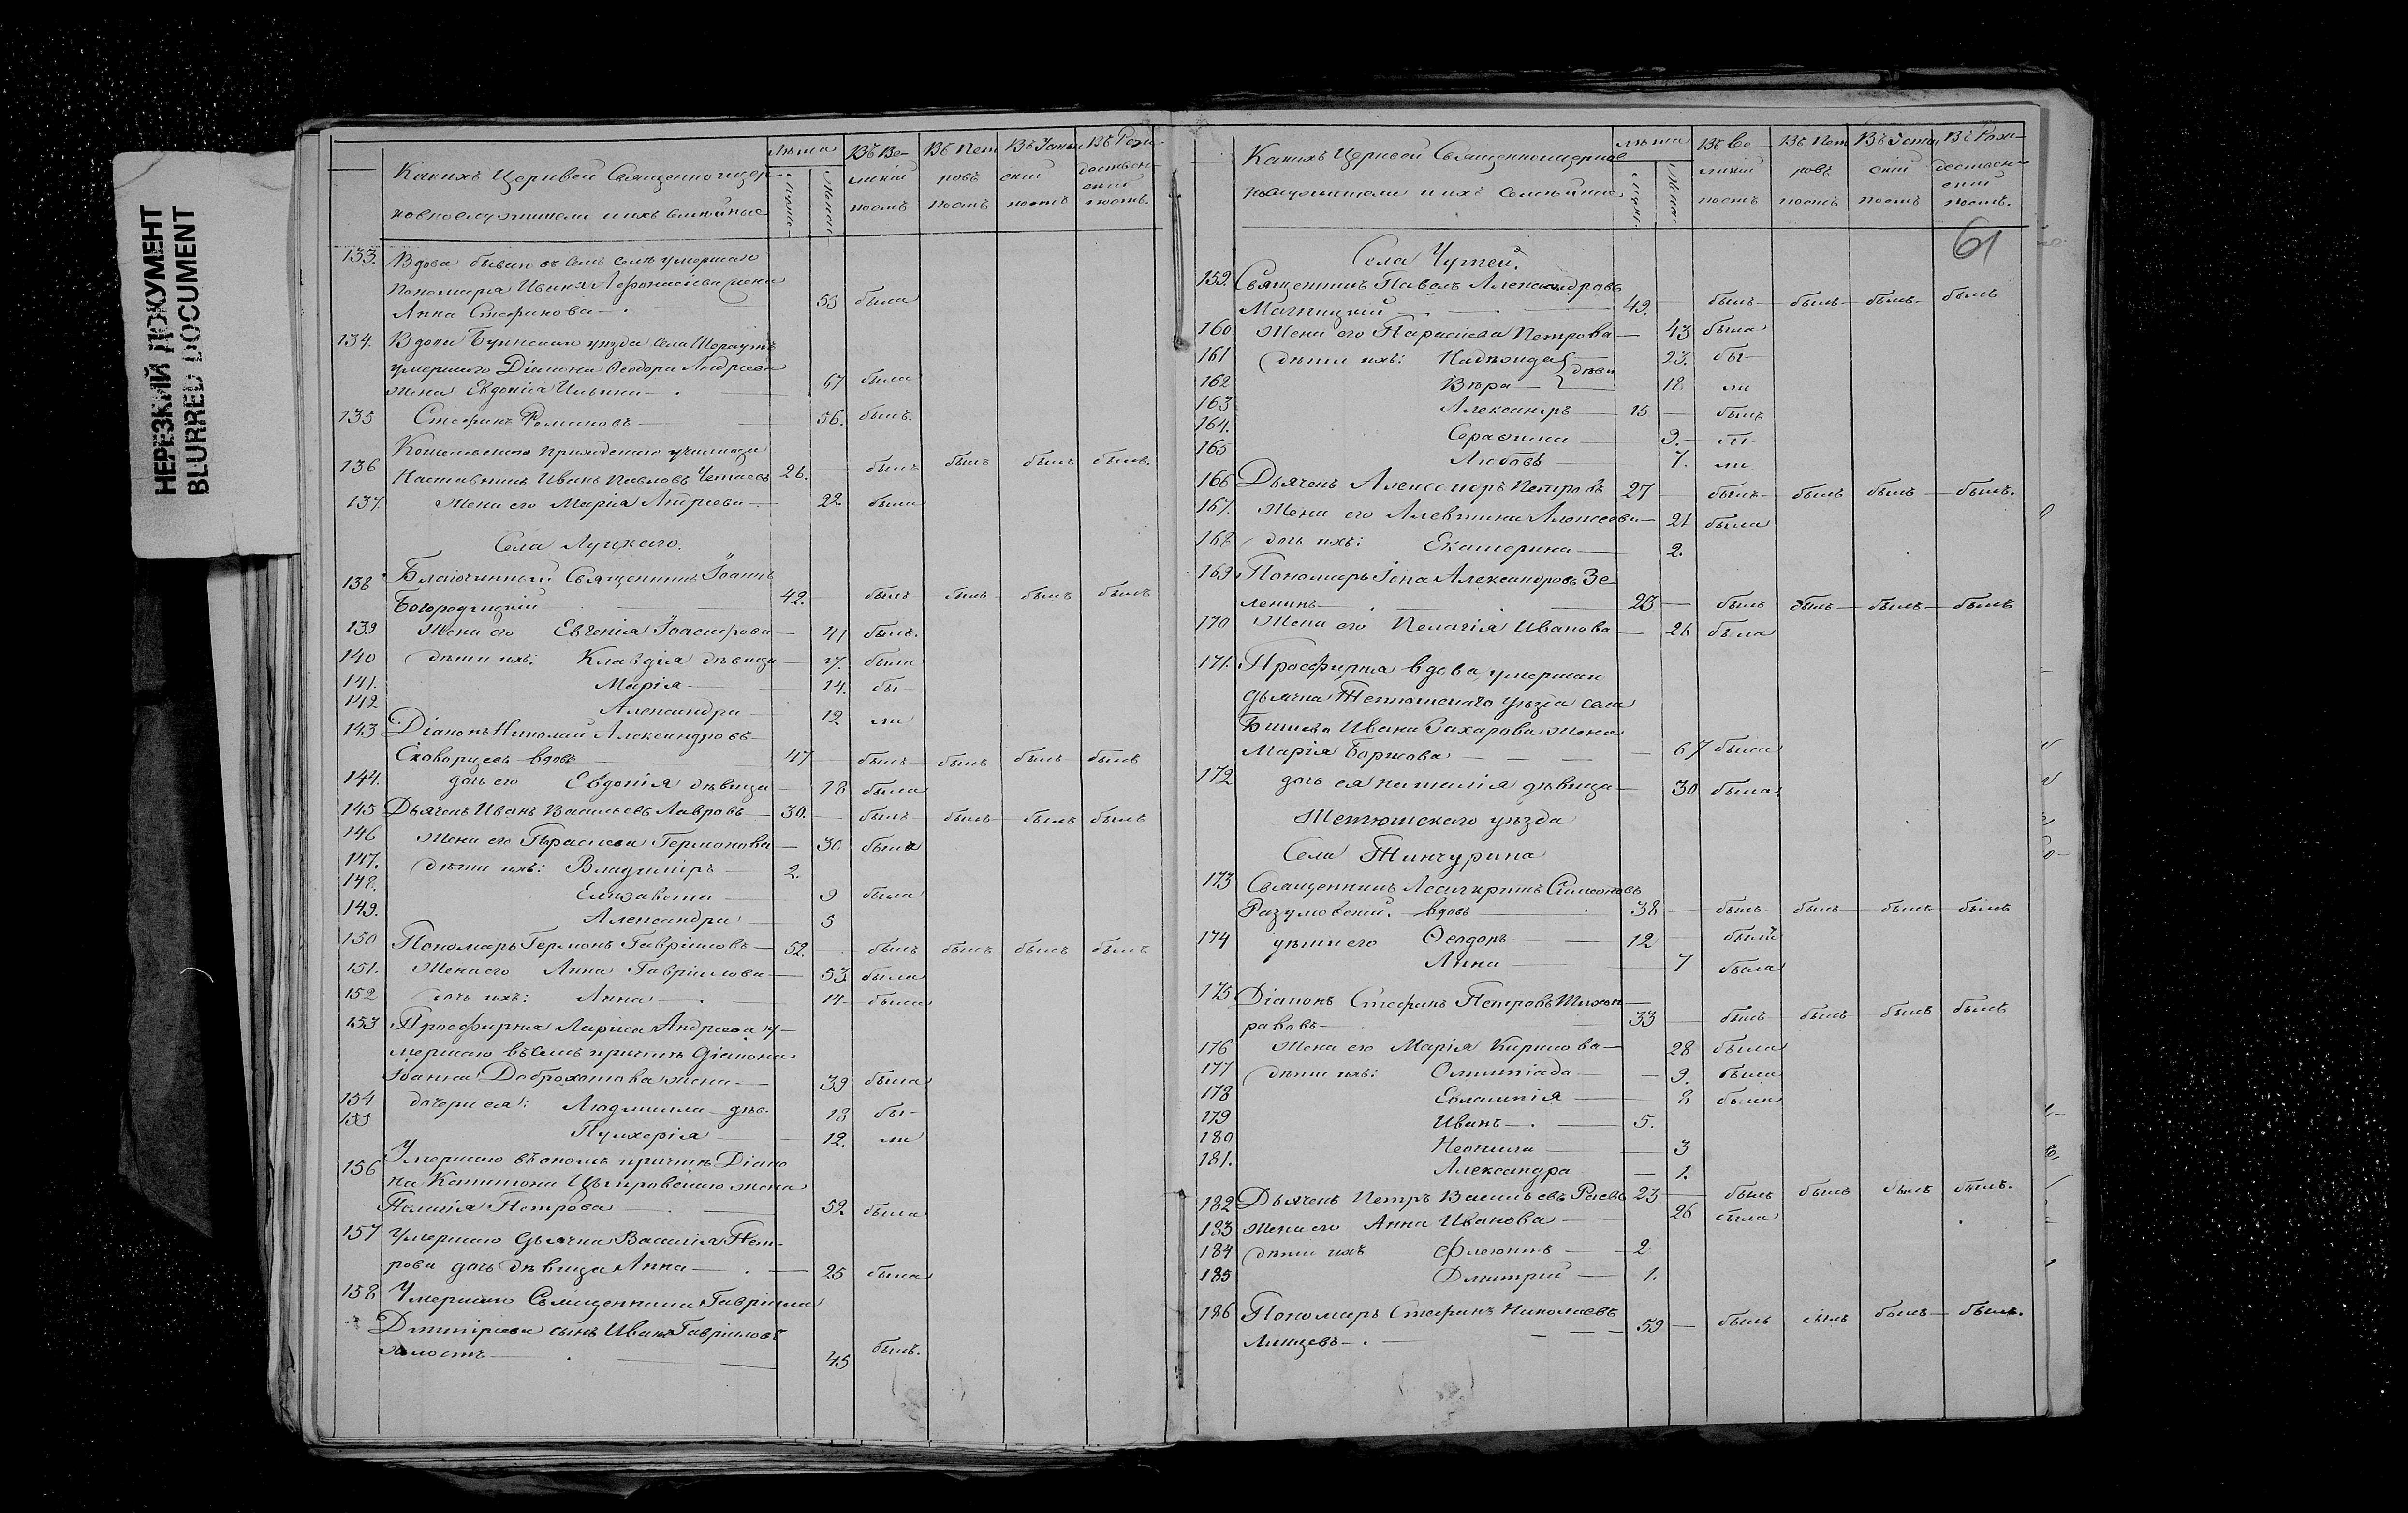 НЕРЕЗКИЙ ДОКУМЕНТ
BLURRED DOCUMENT
Какихъ Церквей Священноцер-
ковнослужители и ихъ семейные
Лѣта
Муж.
Женс.
Въ Ве-
ликій
постъ
Въ Пет
ровъ
постъ
Въ Успен
скій
постъ
Въ Рож-
дествен-
скій
постъ.
133. Вдова бывша въ семъ селѣ умершаго
Пономаря Ивана Афонасіева жена
Анна Стефанова 55 была
134. Вдова Буинскаго уѣзда села
умершаго Діакона Ѳеодора Андреева
жена Евдокія Ильина 67 была
135 Стефанъ Романовъ 56. былъ.
приходскаго училища
136 Наставникъ Иванъ Павловъ 26. былъ былъ былъ былъ.
137. Жена его Марія Андреева 22 была
Села Луцкаго.
138 Благочинный Священникъ Іоаннъ
Богородицкій 42. былъ былъ былъ былъ
139 Жена его Евгенія 41 былъ.
140 дѣти ихъ: Клавдія дѣвица 17. была
141. Марія 14. бы-
142 Александра 12 ли
143 Діаконъ Николай Александровъ
Скворцевъ вдовъ 47 былъ былъ былъ былъ
144. дочь его Евдокія дѣвица 18 была
145 Дьячекъ Иванъ Васильевъ Лавровъ 30. былъ былъ былъ былъ
146 Жена его Параскева Германова 30 была
147. дѣти ихъ: Владиміръ 2.
148. Елизавета 9 была
149. Александра 5
150 Пономарь Германъ Гавріиловъ 52. былъ былъ былъ былъ
151. Жена его Анна Гавріилова 53 была
152 дочь ихъ: Анна 14 была
153 Просфирня Лариса Андреева у-
мершаго въ семъ причтѣ діакона
Іоанна Доброхотова жена 39 была
154 дочери ея: Людмила дѣв. 18 бы-
155 Пульхерія 12. ли
156 Умершаго въ ономъ причтѣ Діако
на жена
Пелагія Петрова 52 была
157 Умершаго дьячка Василія Пет-
рова дочь дѣвица Анна 25 была
158 Умершаго Священника Гавріила
Димитріева сынъ Иванъ Гавріиловъ
холостъ 45 былъ.
Какихъ Церквей Священноцерков
нослужители и ихъ Семейные
лѣта
Муж.
Женс.
Въ Ве-
ликій
постъ
Въ Пет
ровъ
постъ
Въ Успен
скій
постъ
Въ Рож-
дествен-
скій
постъ.
61
Села Чутей.
159. Священникъ Павелъ Александровъ
Магницкій 49. былъ былъ былъ былъ
160 Жена его Параскева Петрова 43 была
161 дѣти ихъ: Надежда 23. бы-
дѣви
162 Вѣра 18 ли
163 Александръ 15 былъ
164. Серафима 9.
165 Любовь 7. ли
166 Дьячекъ Александръ Петровъ 27 былъ былъ былъ былъ.
167. Жена его Алевтина Алексеева 21 была
168 дочь ихъ: Екатерина 2.
169 Пономарь Іона Александровъ Зе
ленинъ 23 былъ былъ былъ былъ
170 Жена его Пелагія Иванова 26 была
171. Просфирня вдова умершаго
дьячка Тетюшскаго уѣзда села
Ивана Захарова жена
Марія Борисова 67 была
172 дочь ея Наталія дѣвица 30 была.
Тетюшскаго уѣзда
Села Тинчурина
173 Священникъ Асинкритъ Симеоновъ
Разумовскій. вдовъ 38 былъ былъ былъ былъ
174 дѣти его Ѳеодоръ 12 былъ
Анна 7 была
175 Діаконъ Стефанъ Петровъ Тихон-
равовъ 33 былъ былъ былъ былъ
176 Жена его Марія Кирилова 28 была
177 дѣти ихъ: Олимпіада 9. была
178 Евлампія 8 была
179 Иванъ 5.
180 Неонила 3
181. Александра 1.
182 Дьячекъ Петръ Васильевъ Раевъ 23 былъ былъ былъ былъ.
183 Жена его Анна Иванова 26 была
184 дѣти ихъ 2
185 Дмитрій 1.
186 Пономарь Стефанъ Николаевъ
59 былъ былъ былъ былъ.